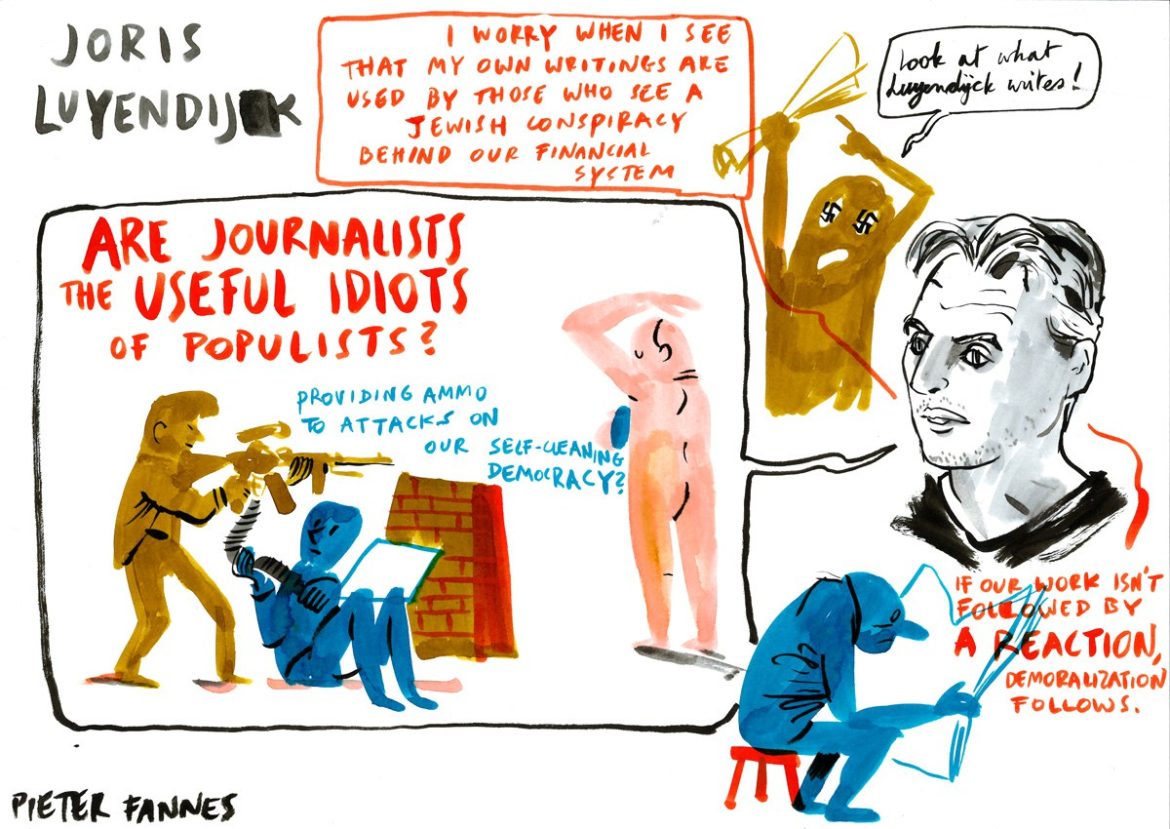 JORIS
LUYENDIJCK
I WORRY WHEN I SEE
THAT MY OWN WRITINGS ARE
USED BY THOSE WHO SEE A
JEWISH CONSPIRACY
BEHIND OUR FINANCIAL
SYSTEM
Look at what
Luyendijck writes!
ARE JOURNALISTS
THE USEFUL IDIOTS
OF POPULISTS?
PROVIDING AMMO
TO ATTACKS ON
OUR SELF-CLEANING
DEMOCRACY?
IF OUR WORK ISN'T
FOLLOWED BY
A REACTION,
DEMORALIZATION
FOLLOWS.
PIETER FANNES